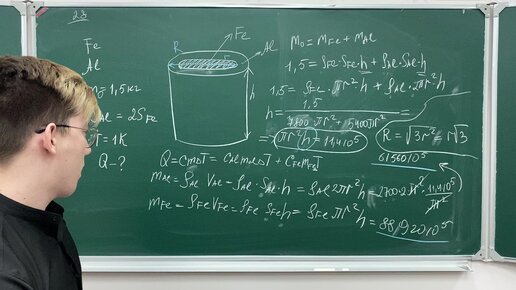 23
Fe
Al
m₀ = 1,5 кг
Al = 2S Fe
T = 1K
Q - ?
R
Fe
Al
h
m₀ = m Fe + m Al
1,5 = ρFe · SFe · h + ρAl · SAl · h
1,5 = ρFe · πr²h + ρAl · 2πr²h
h = 1,5 / 7800 πr² + 5400πr²
πr²h = 11,4·10⁻⁵
R = √3r² = r√3
61560·10⁻⁵
Q = CmΔT = CAl mAl ΔT + CFe mFe ΔT
mAl = ρAl VAl = ρAl · SAl · h = ρAl 2πr²h = 2700·2πr² · 11,4·10⁻⁵ / πr²
mFe = ρFe VFe = ρFe · SFe h = ρFe πr²h = 88920·10⁻⁵